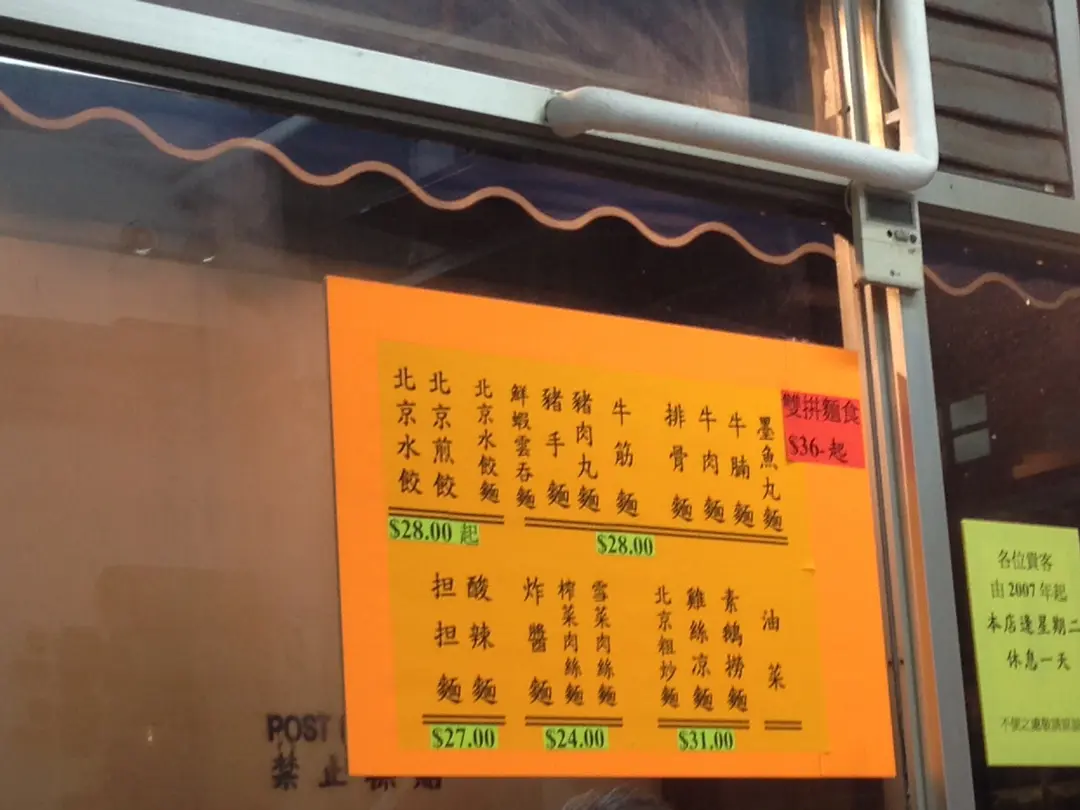 雙拼麵食
$36-起
墨魚丸麵
牛腩麵
牛肉麵
排骨麵
牛筋麵
豬肉丸麵
豬手麵
鮮蝦雲吞麵
$28.00
北京水餃麵
北京煎餃
北京水餃
$28.00 起
油菜
素鵝撈麵
雞絲凉麵
北京粗炒麵
$31.00
雪菜肉絲麵
榨菜肉絲麵
炸醬麵
$24.00
酸辣麵
担担麵
$27.00
各位貴客
由2007年起
本店逢星期二
休息一天
不便之處敬請
POST
禁止